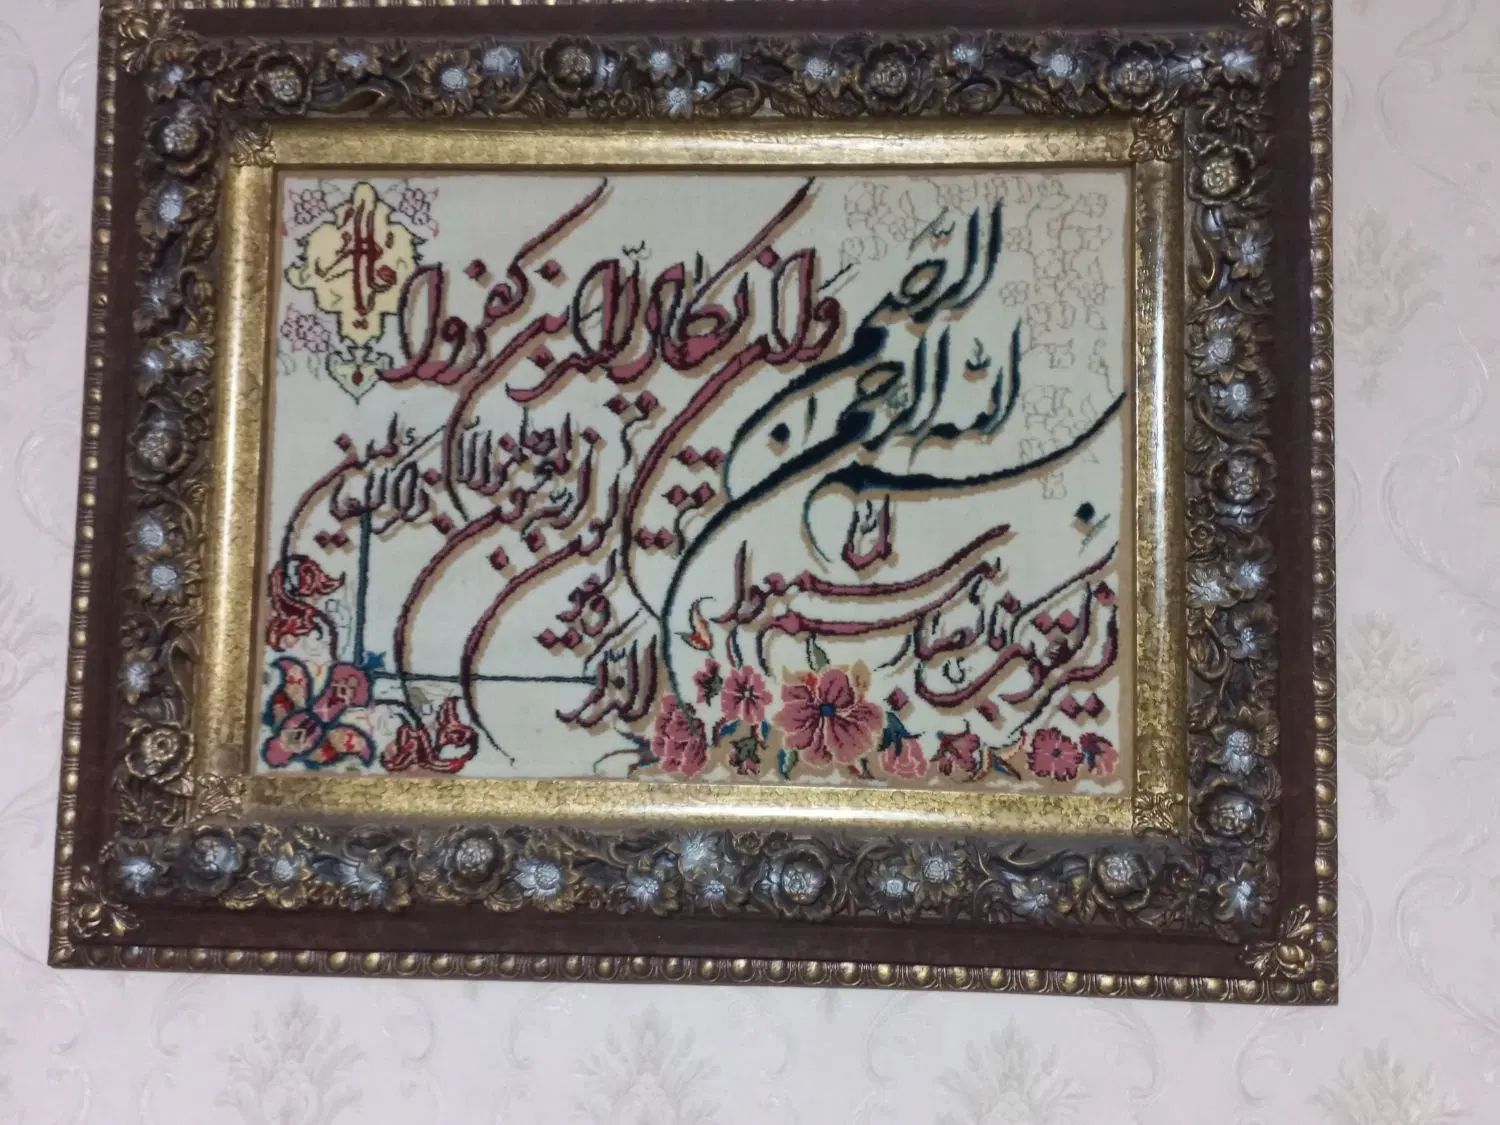 بسم الله الرحمن الرحیم
وان یکاد الذین کفروا
لیزلقونک بابصارهم
لما سمعوا
الذکر
ویقولون انه لمجنون
وما هو الا
ذکر للعالمین